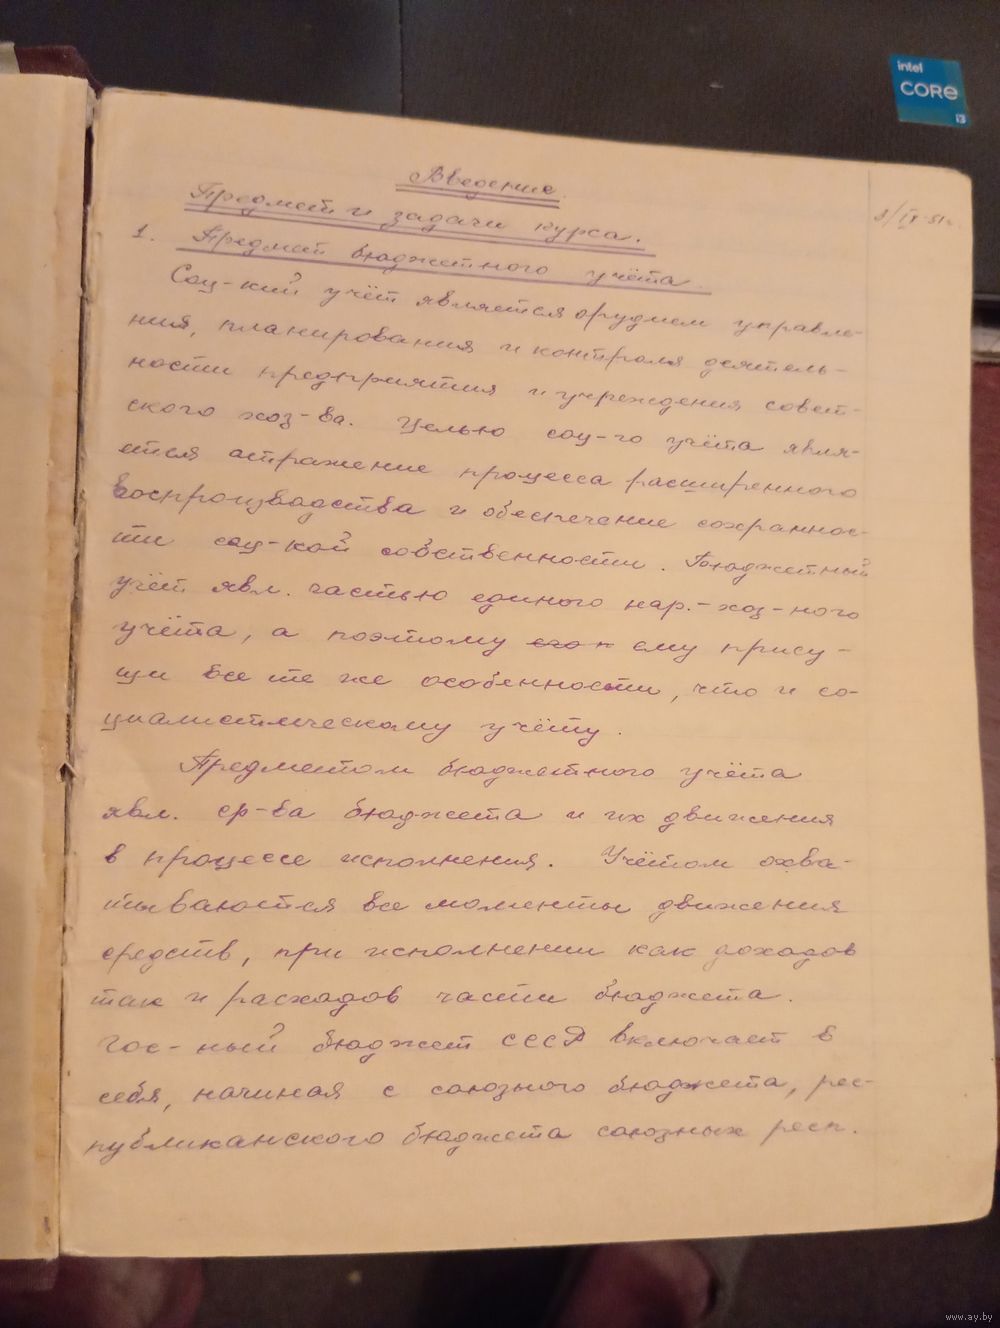 intel
CORe
i3
Введение.
3/IX-51г.
Предмет и задачи курса.
1. Предмет бюджетного учёта.
Соц-кий учёт является орудием управле-
ния, планирования и контроля деятель-
ности предприятия и учреждения совет-
ского хоз-ва. Целью соц-го учёта явля-
ется отражение процесса расширенного
воспроизводства и обеспечение сохраннос-
ти соц-кой собственности. Бюджетный
учёт явл. частью единого нар.-хоз-ного
учёта, а поэтому ему прису-
щи все те же особенности, что и со-
циалистическому учёту.
Предметом бюджетного учёта
явл. ср-ва бюджета и их движения
в процессе исполнения. Учётом охва-
тываются все моменты движения
средств, при исполнении как доходов
так и расходов части бюджета.
Гос-ный бюджет СССР включает в
себя, начиная с союзного бюджета, рес-
публиканского бюджета союзных респ.
www.ay.by